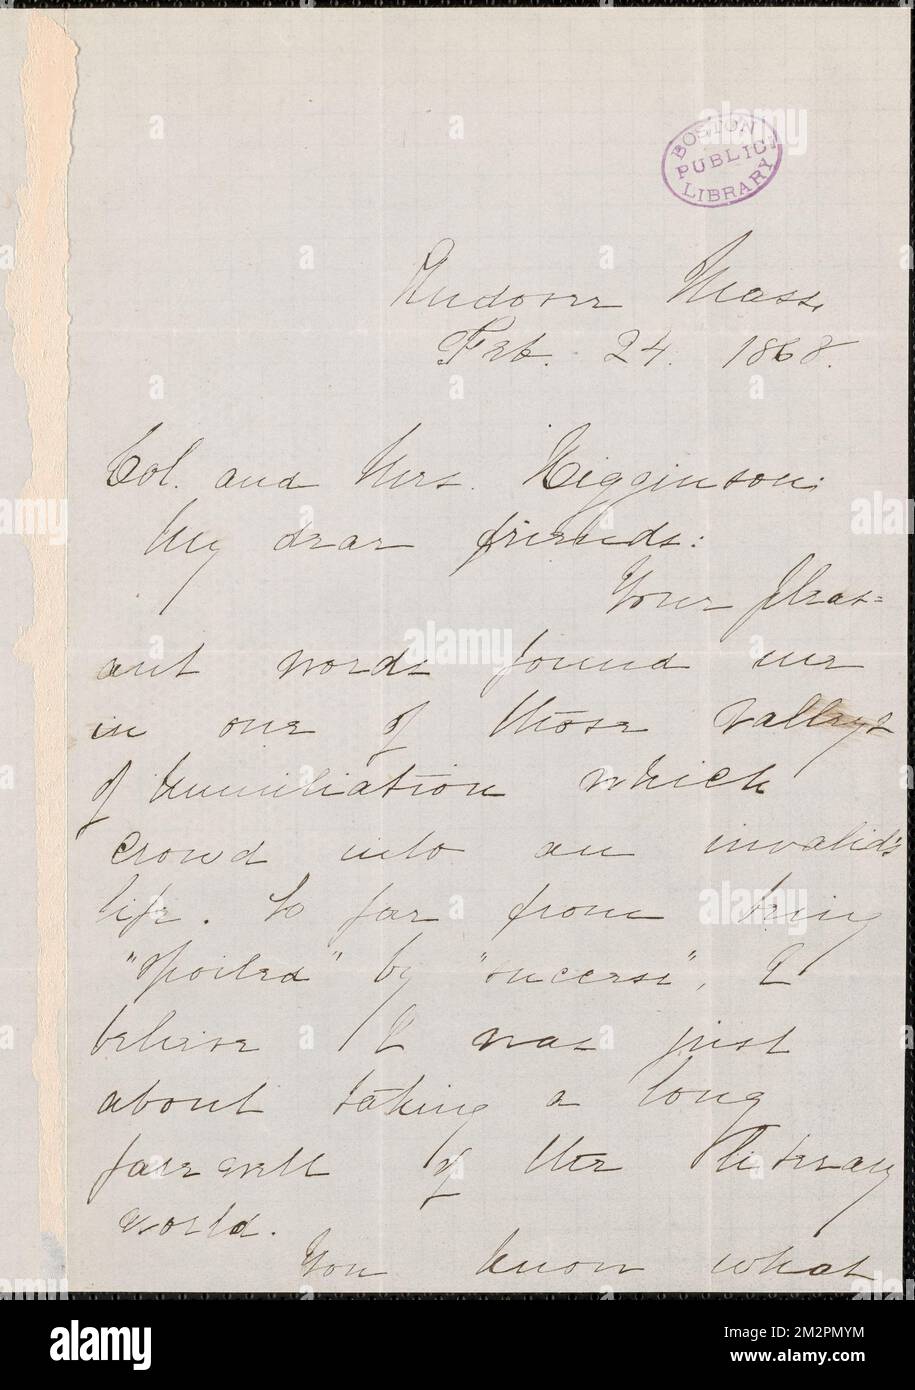 BOSTON
PUBLIC
LIBRARY
Andover Mass.
Feb. 24. 1868.
Col. and Mrs. Higginson;
My dear friends:
Your pleas=
ant words found me
in one of those valleys
of humiliation which
crowd into an invalid's
life. So far from being
"spoiled" by "success", I
believe I was just
about taking a long
farewell of the literary
world.
You know what
alamy
Image ID: 2M2PMYM
www.alamy.com